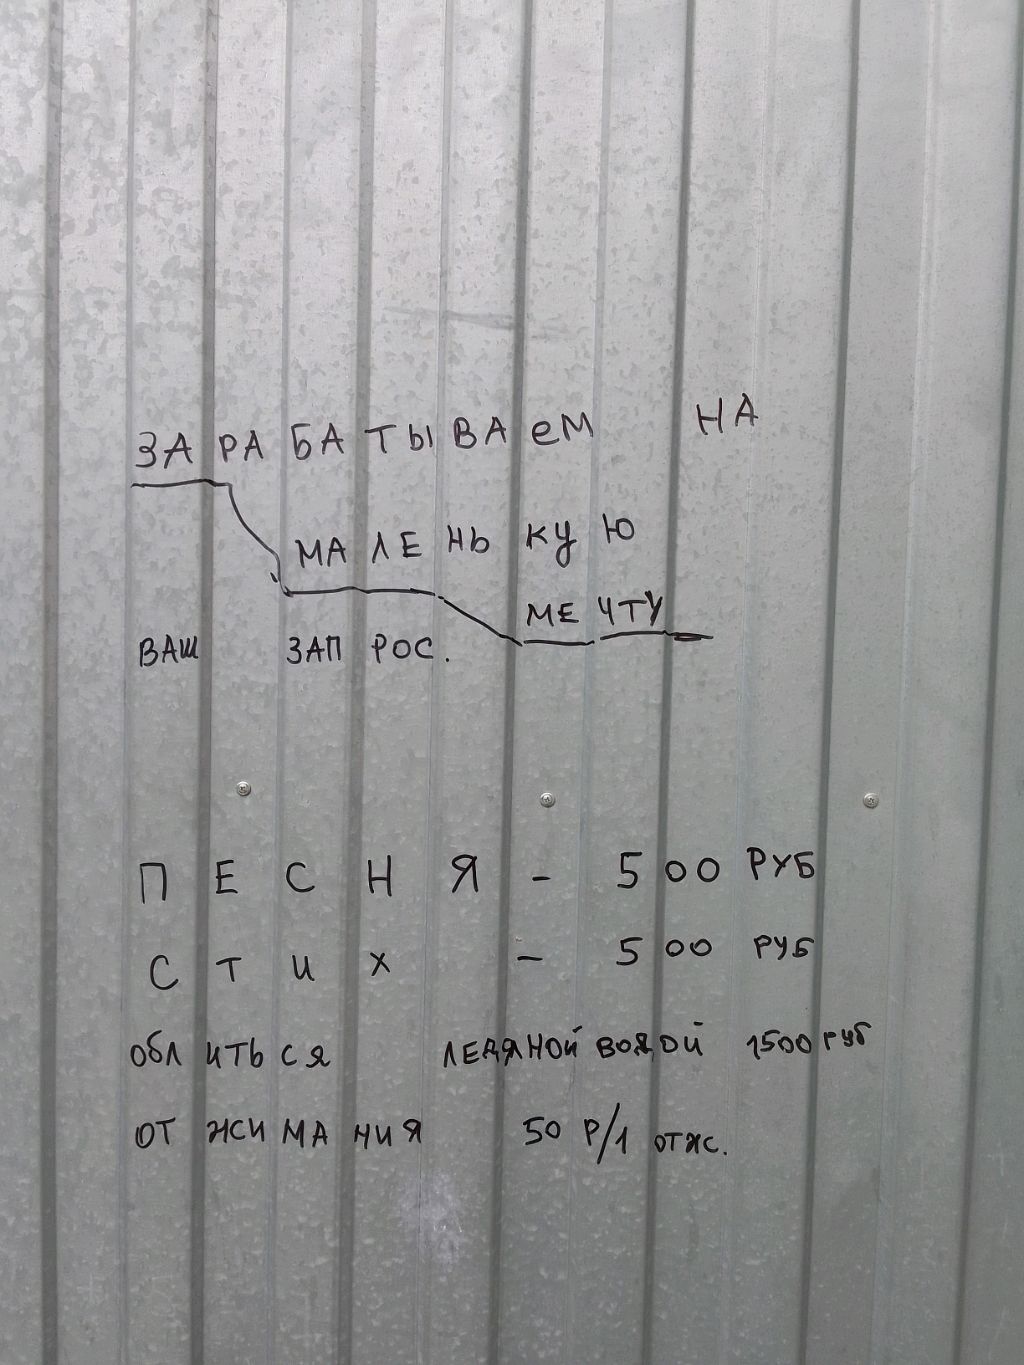 ЗАРАБАТЫВАеМ НА
МАЛЕНЬКУЮ
МЕЧТУ
ВАШ ЗАПРОС.
ПЕСНЯ - 500 РУБ
СТИХ - 500 РУБ
ОБЛИТЬСЯ ЛЕДЯНОЙ ВОДОЙ 1500 РУБ
ОТЖИМАНИЯ 50 Р/1 ОТЖ.